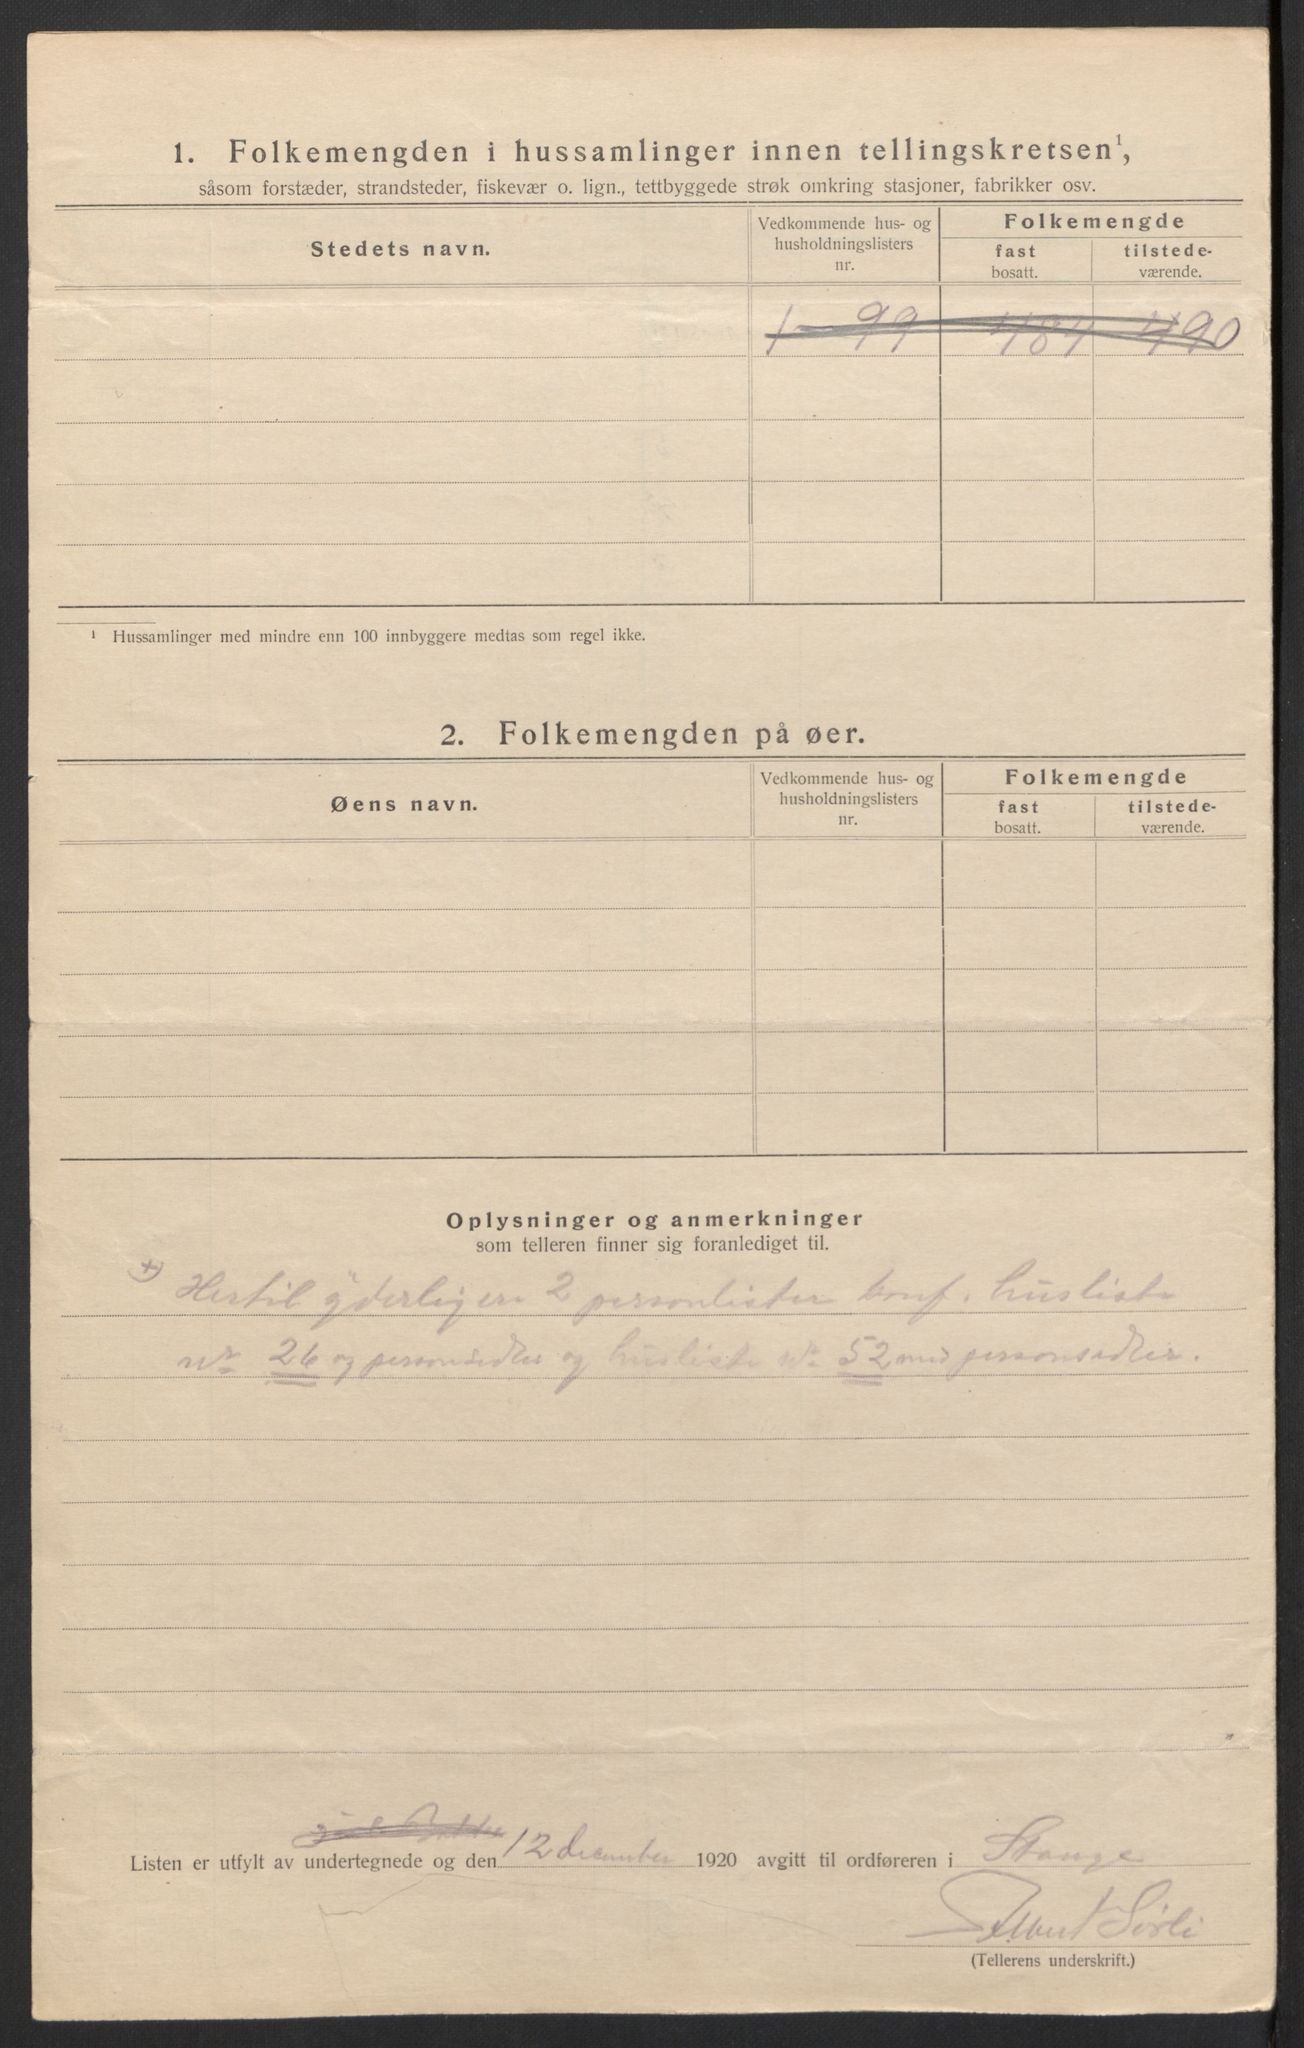 1. Folkemengden i hussamlinger innen tellingskretsen¹,
såsom forstæder, strandsteder, fiskevær o. lign., tettbyggede strøk omkring stasjoner, fabrikker osv.
Stedets navn.
Vedkommende hus- og
husholdningslisters
nr.
Folkemengde
fast
bosatt.
tilstede-
værende.
1 - 99 484 490
¹ Hussamlinger med mindre enn 100 innbyggere medtas som regel ikke.
2. Folkemengden på øer.
Øens navn.
Vedkommende hus- og
husholdningslisters
nr.
Folkemengde
fast
bosatt.
tilstede-
værende.
Oplysninger og anmerkninger
som telleren finner sig foranlediget til.
+) Hertil yderligere 2 personlister konf. husliste
Nr 26 og personsedler og husliste Nr 52 med personsedler.
Listen er utfylt av undertegnede og den 12 december 1920 avgitt til ordføreren i Stange
Albert Sørli
(Tellerens underskrift.)